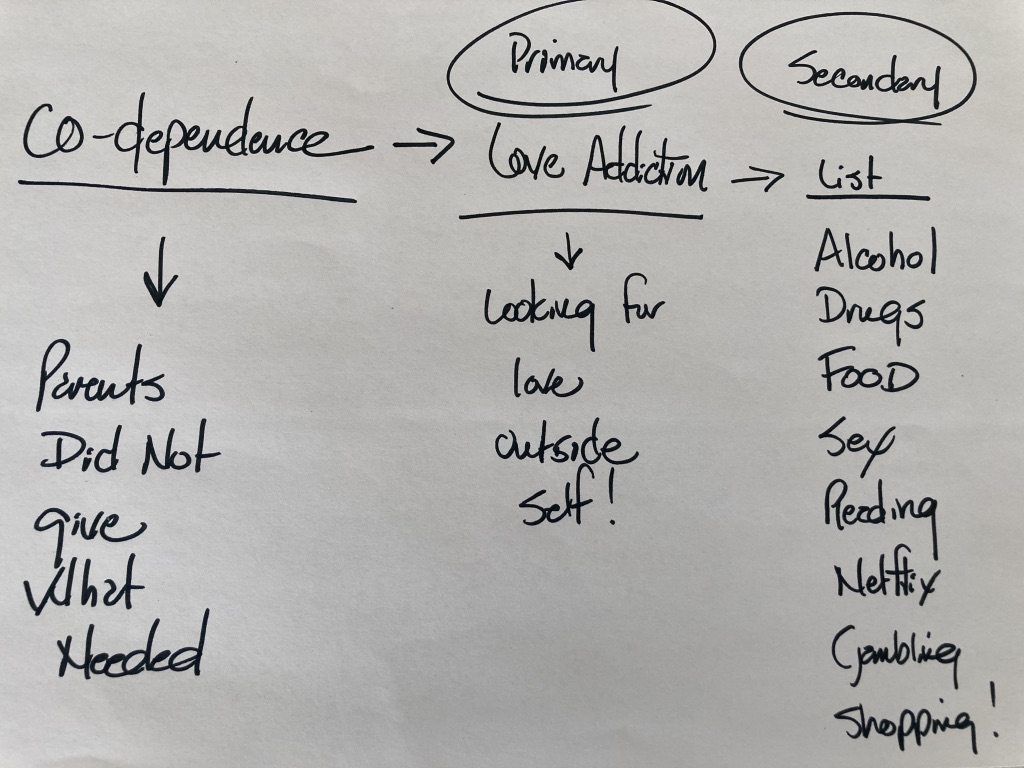 Co-dependence →
↓
Parents
Did Not
give
What
Needed
Primary
Love Addiction →
↓
Looking for
love
outside
self!
Secondary
List
Alcohol
Drugs
FOOD
Sex
Reading
Netflix
Gambling
Shopping!